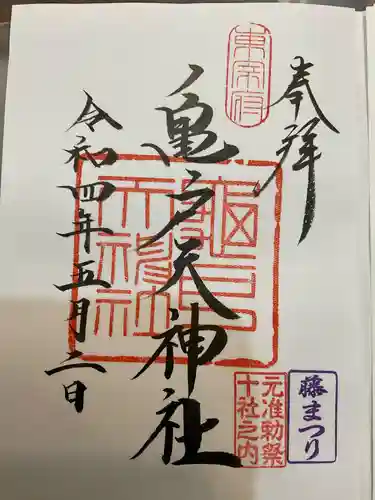 奉拝
藤まつり
東宰府
元准勅祭
十社之内
亀戸天神社
令和四年五月二日